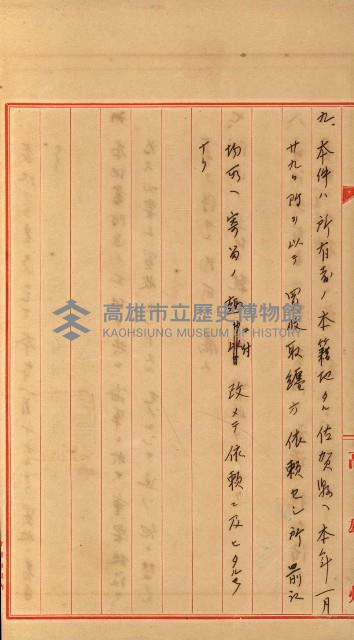 九、本件ハ所有者ノ本籍地タル佐賀縣ヘ本年一月
廿九日附ヲ以テ買收取纏方依頼セシ所前記
場所ヘ寄留ノ 付改メテ依頼ニ及ヒタル
ナリ
高雄州
高雄市立歷史博物館
KAOHSIUNG MUSEUM OF HISTORY